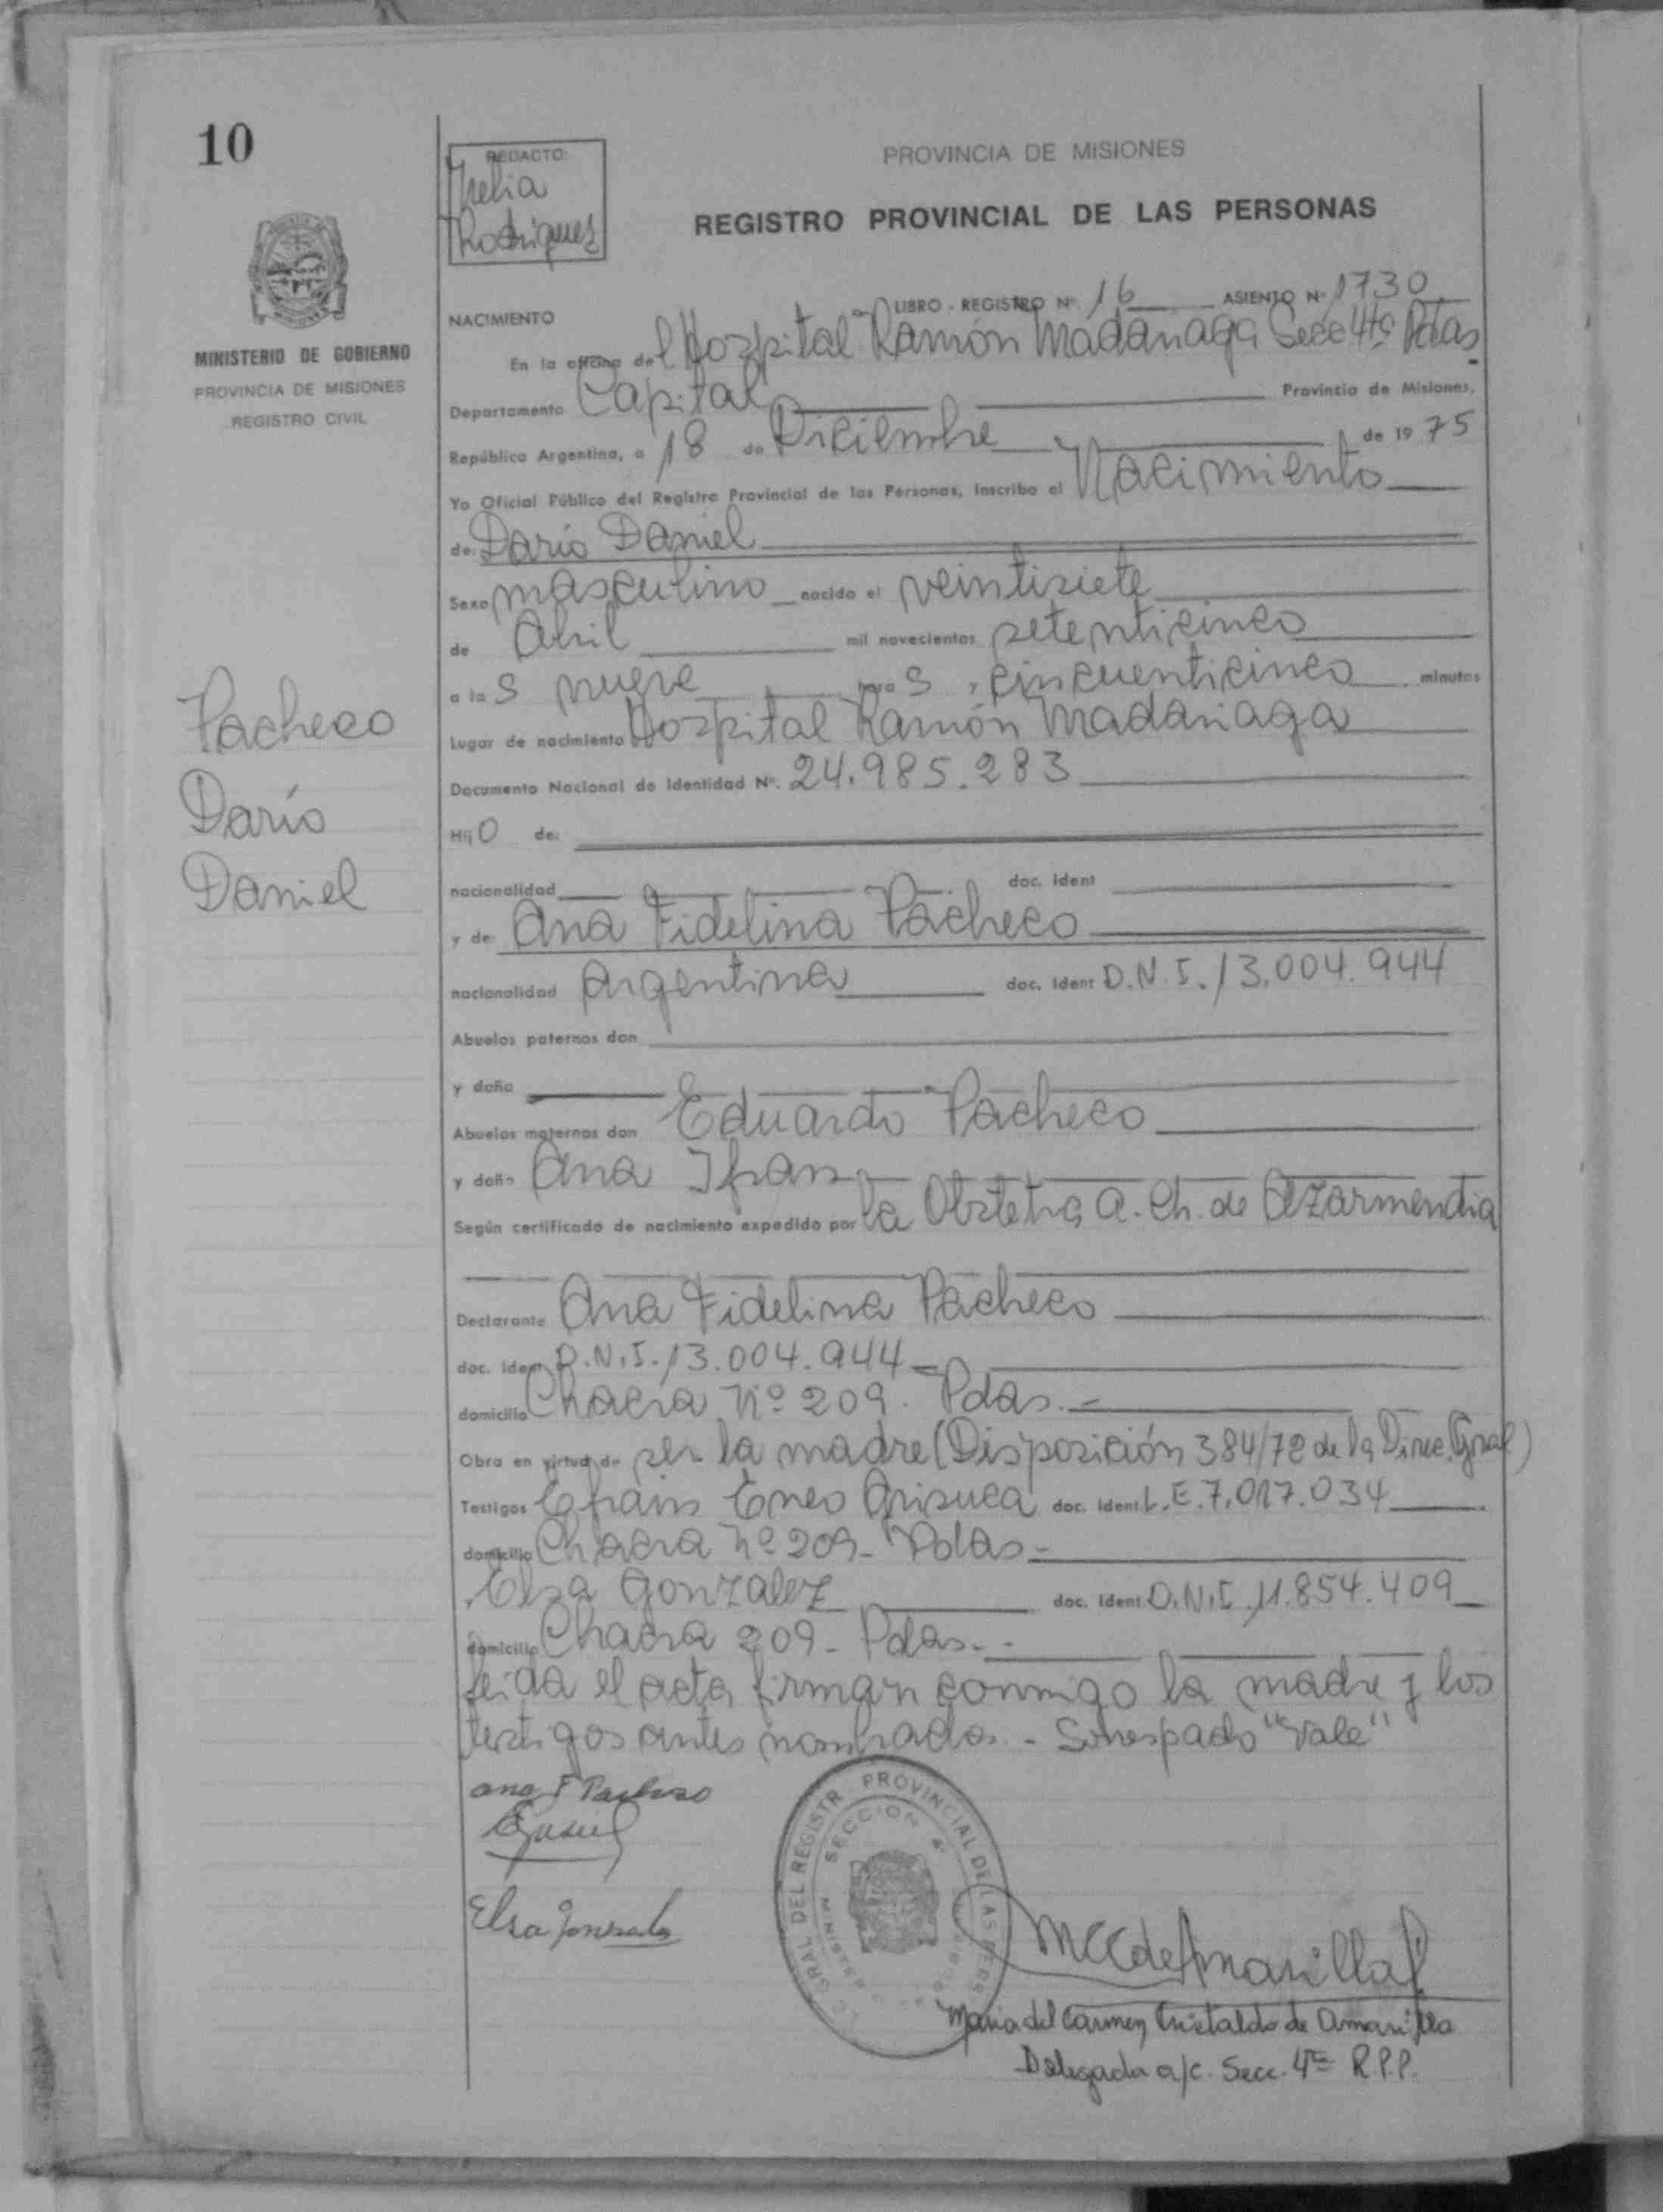 10
REDACTO:
Rodriguez
PROVINCIA DE MISIONES
REGISTRO PROVINCIAL DE LAS PERSONAS
MINISTERIO DE GOBIERNO
PROVINCIA DE MISIONES
REGISTRO CIVIL
LIBRO - REGISTRO Nº. 16 ASIENTO Nº 1730
NACIMIENTO
En la oficina del Hospital Ramón Madariaga Secc 4ta Pdas
Departamento Capital Provincia de Misiones,
República Argentina, a 18 de Diciembre de 1975
Yo Oficial Público del Registro Provincial de las Personas, Inscribo el Nacimiento
de: Darío Daniel
Sexo masculino nacido el veintisiete
de Abril mil novecientos setenticinco
a las nueve horas y cincuenticinco minutos
Lugar de nacimiento Hospital Ramón Madariaga
Documento Nacional de Identidad Nº. 24.985.283
Hijo de:
nacionalidad doc. Ident
y de: Ana Fidelina Pacheco
nacionalidad Argentina doc. Ident D.N.I. 13.004.944
Abuelos paternos don
y doña
Abuelos maternos don Eduardo Pacheco
y doña Ana Ifran
Según certificado de nacimiento expedido por la Obstetra A. Ch. de Azarmendia
Declarante Ana Fidelina Pacheco
doc. Ident D.N.I. 13.004.944
domicilio Chacra Nº 209. Pdas.-
Obra en virtud de ser la madre (Disposición 384/72 de la Direc. Gral)
Testigos Efraín Eneo doc. Ident L.E. 7.017.034
domicilio Chacra Nº 209- Pdas-
Elsa Gonzalez doc. Ident D.N.I. 11.854.409
domicilio Chacra 209- Pdas.-
leida el acta firman conmigo la madre y los
testigos antes nombrados.- Sobrerpado "Vale"
Pacheco
Darío
Daniel
Ana F Pacheco
Elsa Gonzalez
GRAL DEL REGISTR PROVINCIAL DE LAS PERS
SECCION 4ª
MCC de Amarilla
Maria del Carmen Cristaldo de Amarilla
Delegada a/c. Secc. 4ta R.P.P.